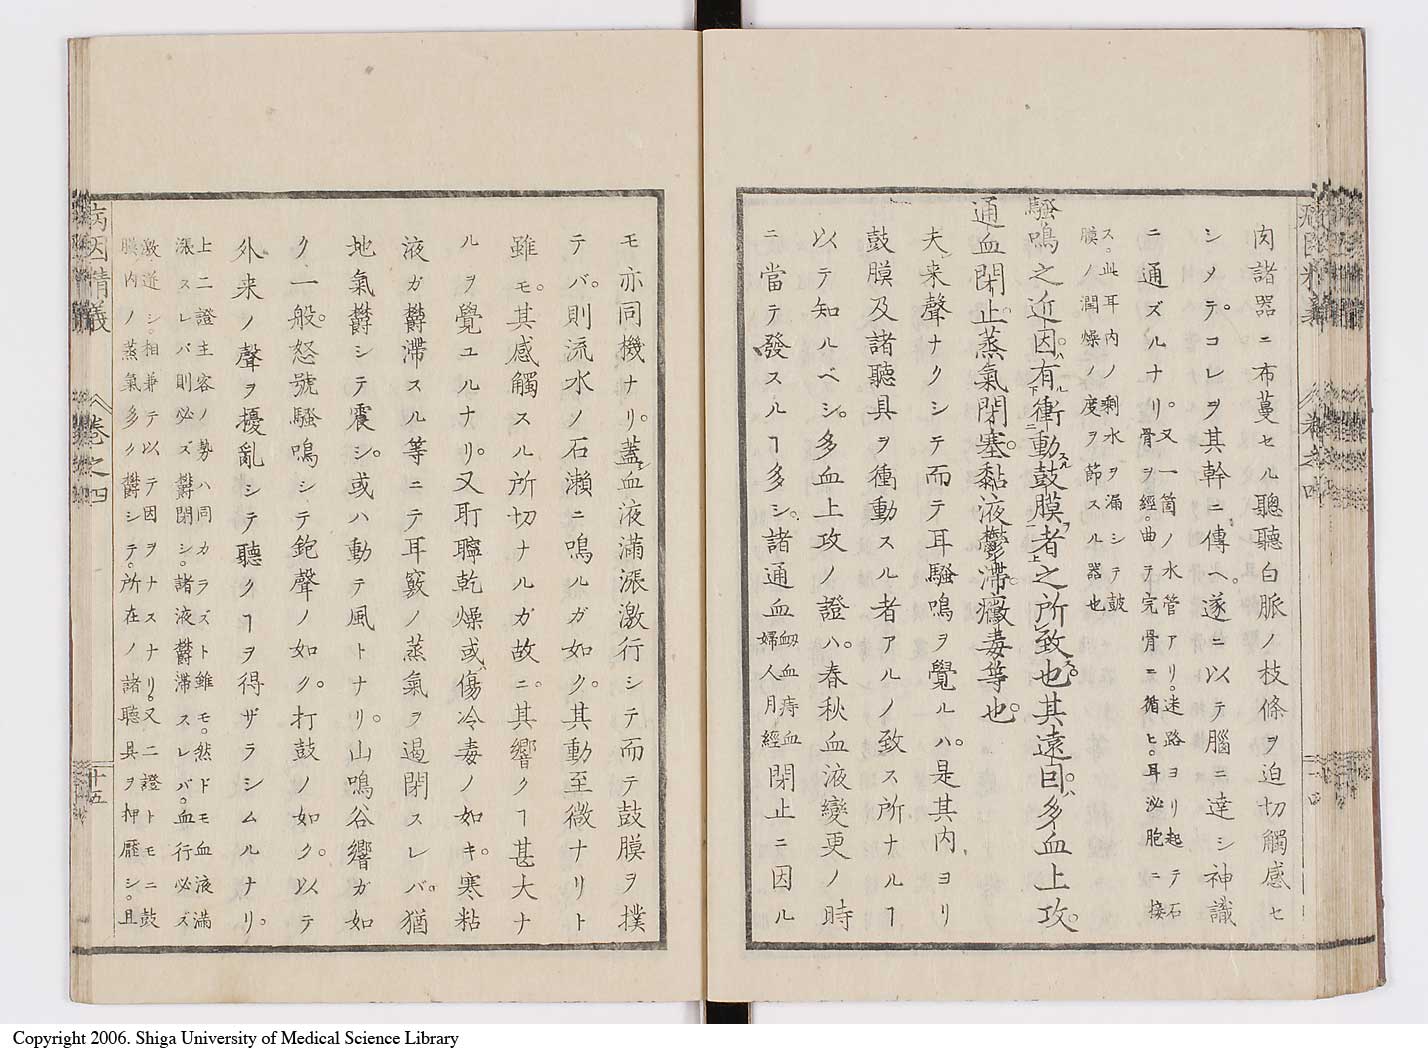 肉諸器ニ布蔓セル聽聽白脈ノ枝條ヲ迫切觸感セ
シメテ。コレヲ其幹ニ傳ヘ。遂ニ以テ腦ニ達シ神識
ニ通ズルナリ。又一箇ノ水管アリ。迷路ヨリ起テ石
骨ヲ經。曲テ完骨ニ循ヒ。耳泌胞ニ接
ス。此耳内ノ剩水ヲ漏シテ鼓
膜ノ潤燥ノ度ヲ節スル器也
騷鳴之近因。ハ有ル下衝ニ動スル鼓膜ヲ者上之所致也。其遠因。ハ多血上攻。
通血閉止。蒸氣閉塞。黏液鬱滯。黴毒等也。
夫来聲ナクシテ而テ耳騷鳴ヲ覺ルハ。是其内ヨリ
鼓膜及諸聽具ヲ衝動スル者アルノ致ス所ナルヿ
以テ知ルベシ。多血上攻ノ證ハ。春秋血液變更ノ時
ニ當テ發スルヿ多シ。諸通血 衂血痔血
婦人月經 閉止ニ因ル
病因精義 卷之四 十五
モ亦同機ナリ。蓋シ血液滿漲激行シテ而テ鼓膜ヲ撲
テバ。則流水ノ石瀬ニ鳴ルガ如ク。其動至微ナリト
雖モ。其感觸スル所切ナルガ故ニ。其響クヿ甚大ナ
ルヲ覺ユルナリ。又耵聹乾燥或傷冷毒ノ如キ。寒粘
液ガ鬱滯スル等ニテ耳竅ノ蒸氣ヲ遏閉スレバ。猶
地氣鬱シテ震シ。或ハ動テ風トナリ。山鳴谷響ガ如
ク。一般怒號騷鳴シテ鉋聲ノ如ク。打鼓ノ如ク。以テ
外来ノ聲ヲ擾亂シテ聽クヿヲ得ザラシムルナリ。
上二證主客ノ勢ハ同カラズト雖モ。然ドモ血液滿
漲スレバ則必ズ鬱閉シ。諸液鬱滯スレバ。血行必ズ
激逆シ。相兼テ以テ因ヲナスナリ。又二證トモニ鼓
膜内ノ蒸氣多ク鬱シテ。所在ノ諸聽具ヲ押壓シ。且
Copyright 2006. Shiga University of Medical Science Library